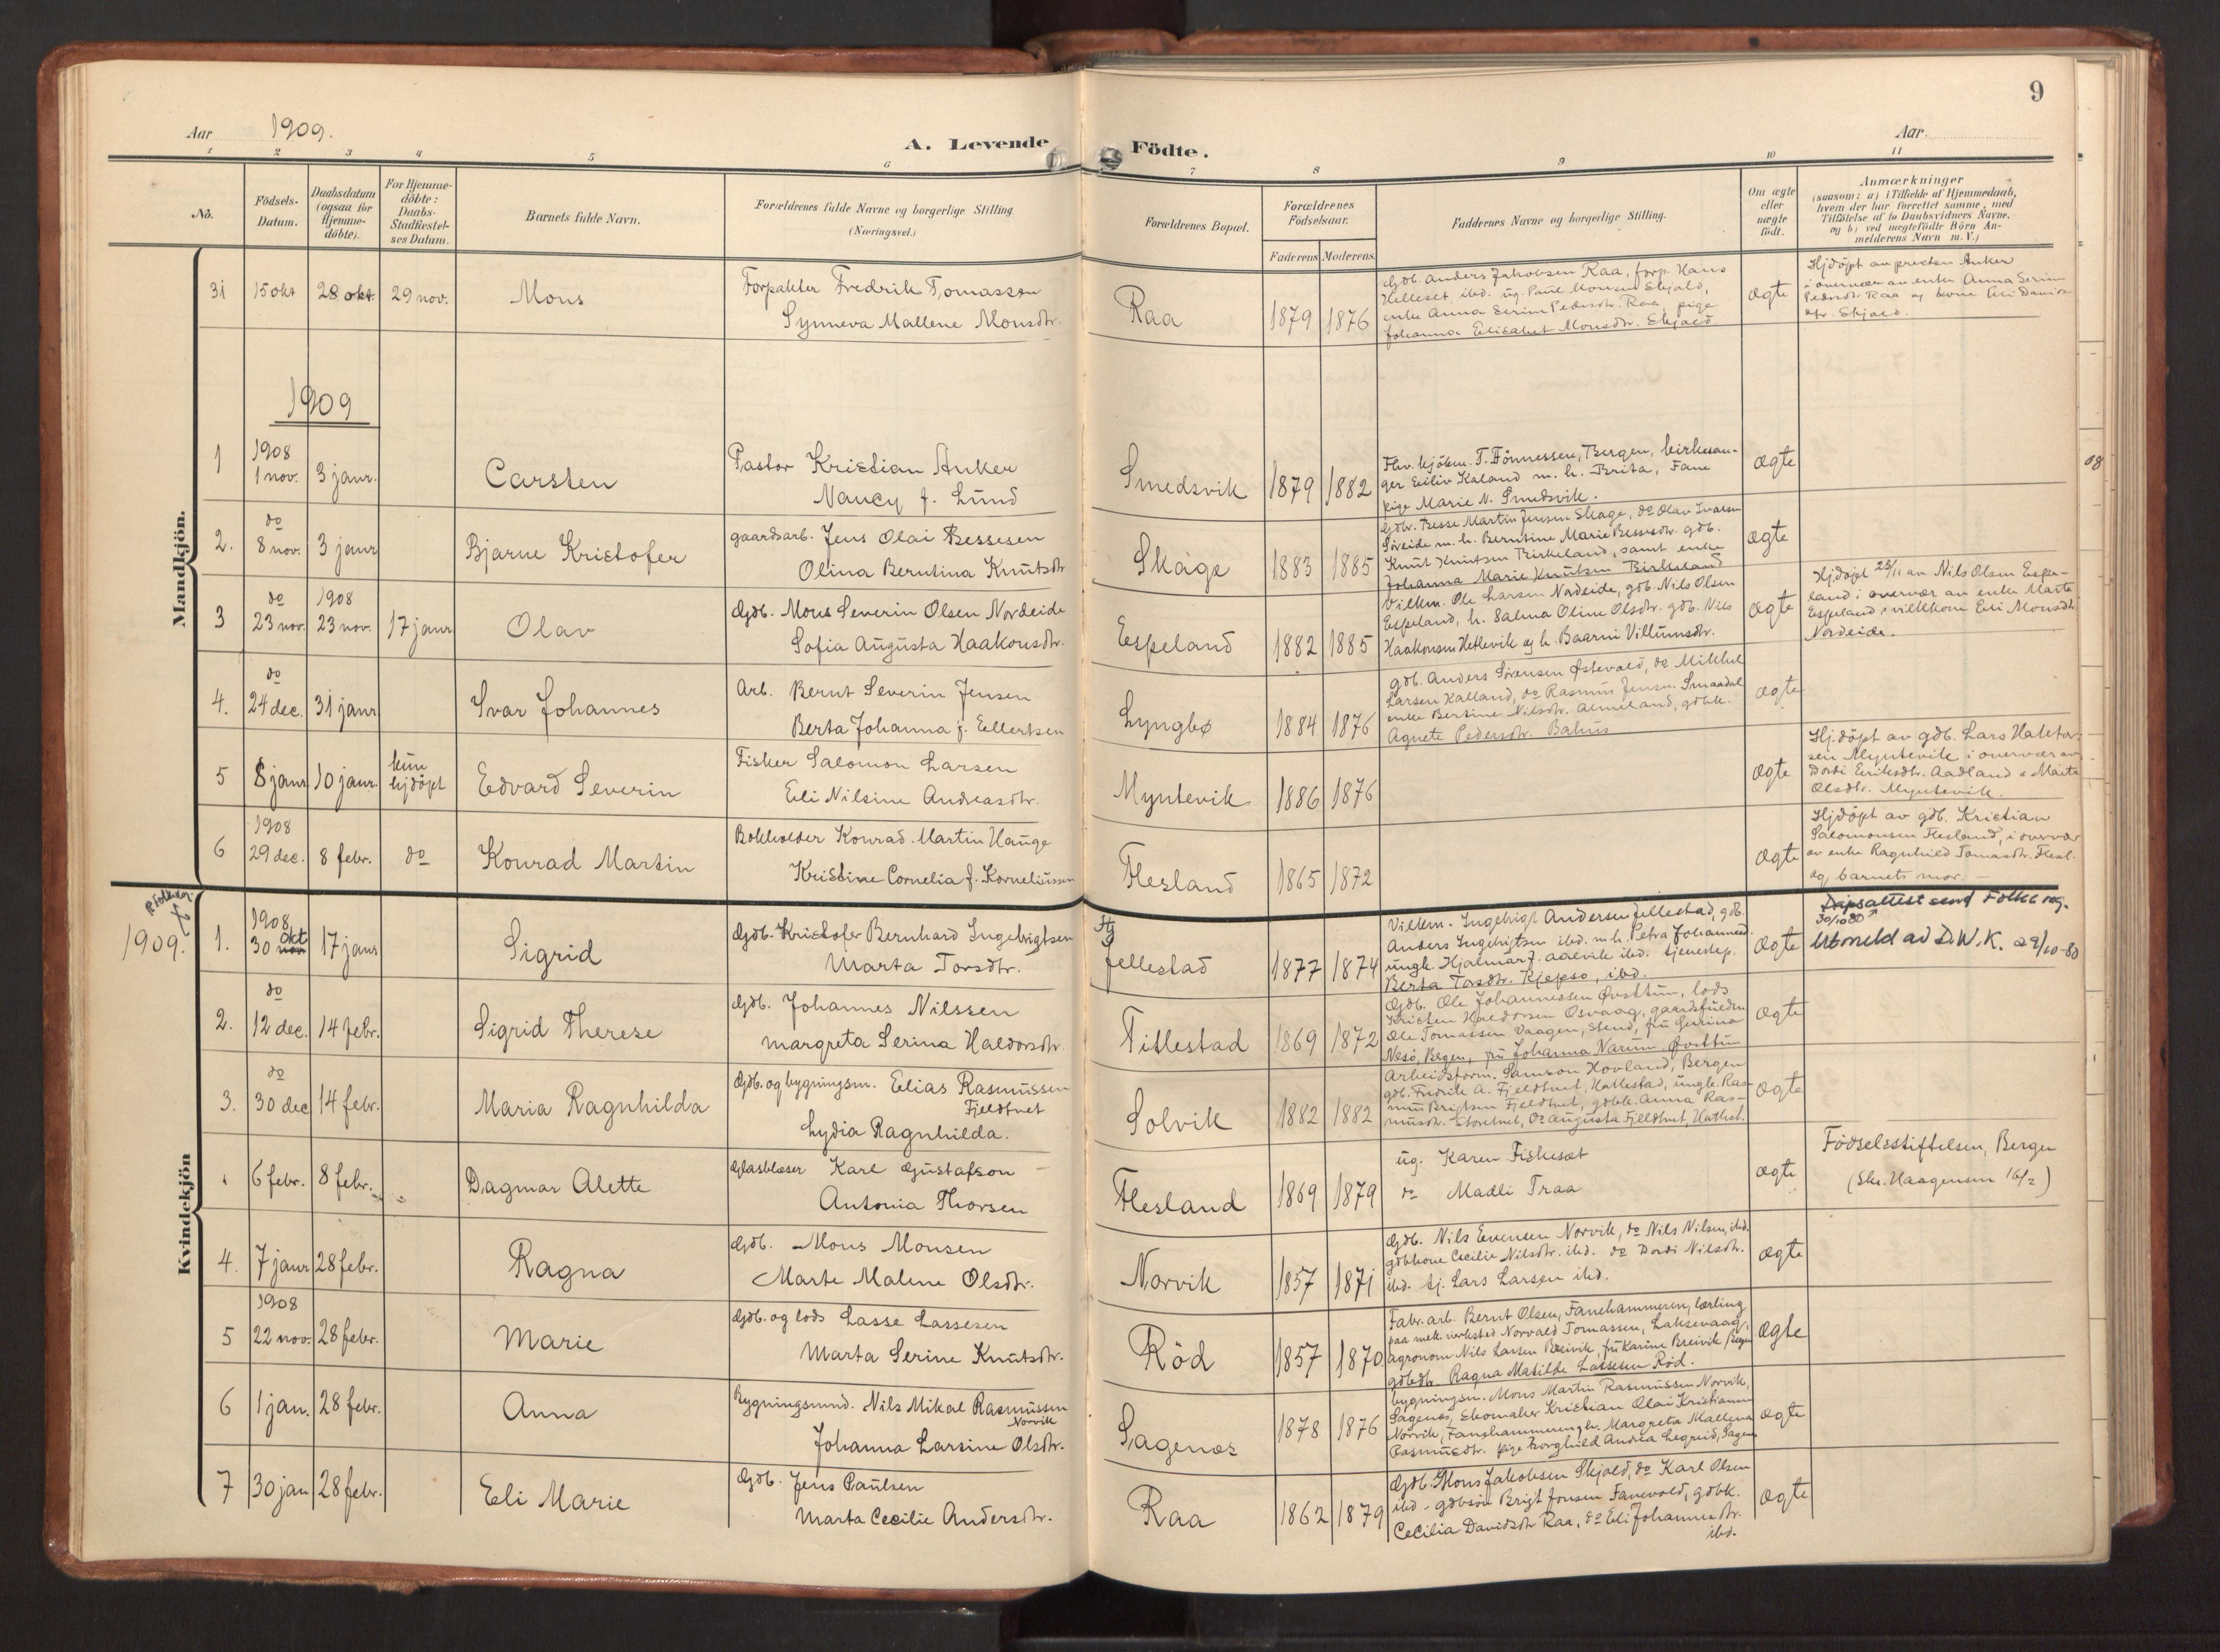 9
Aar 1909.
A. Levende Födte.
Aar.
1 2 3 4 5 6 7 8 9 10 11
No.
Födsels-
Datum.
Daabsdatum
(ogsaa for
Hjemme-
döbte).
For Hjemme-
döbte:
Daabs-
Stadfestel-
ses Datum.
Barnets fulde Navn.
Forældrenes fulde Navne og borgerlige Stilling
(Næringsvei.)
Forældrenes Bopæl.
Forældrenes
Födselsaar.
Faderens Moderens
Faddernes Navne og borgerlige Stilling.
Om ægte
eller
uægte
født.
Anmærkninger
(saasom: a) i Tilfælde af Hjemmedaab,
hvem der har forrettet samme, med
Tilföielse af to Daabsvidners Navne,
og b) ved uægtefödte Börn An-
melderens Navn m. V.)
Mandkjön.
31 15 okt 28 okt. 29 nov. Mons
Forpakter Fredrik Tomassen
Synneva Mallene Monsdtr.
Raa 1879 1876
Gdb. Anders Jakobsen Raa, forp. Hans
Helleset, ibd. ug. Paul Monsen Skjold,
enke Anna Serine Pedersdtr. Raa, pige
Johanna Elisabet Monsdtr. Skjold
ægte
Hjdöpt av presten Anker
i overvær av enke Anna Serine
Pedersdtr. Raa og kone Eli Davids-
dtr. Skjold.
1909
1 1908
1 nov. 3 janr. Carsten
Pastor Kristian Anker
Nancy f. Lund
Smedsvik 1879 1882
Fhv. kjöbm. T. Fönnessen, Bergen, kirkesan-
ger Eiliv Kaland m. h. Brita, Fane
pige Marie N. Smedsvik.
ægte
2. do
8 nov. 3 janr Bjarne Kristofer
gaardsarb. Jens Olai Bessesen
Olina Berntina Knutsdtr
Skage 1883 1885
Gdbr. Besse Martin Jensen Skage, do Olav Ivarsen
Söreide m. h. Berntine Marie Bessesdtr. gdb.
Knut Knutsen Birkeland, samt enke
Johanna Marie Knutsen Birkeland
ægte
3 do
23 nov. 1908
23 nov. 17 janr Olav
Gdb. Mons Severin Olsen Nordeide
Sofia Augusta Haakonsdtr.
Espeland 1882 1885
Vilkm. Ole Larsen Nadeide, gdb Nils Olsen
Espeland, h. Salma Oline Olsdtr. gdb. Nils
Haakonsen Hetlevik og h. Baarni Villumsdtr.
ægte
Hjdöpt 25/11 av Nils Olsen Espe-
land i overvær av enke Marta
Espeland i vilkkone Eli Monsdtr
Nadeide.
4. do
24 dec. 31 janr Ivar Johannes
Arb. Bernt Severin Jensen
Berta Johanna f. Ellertsen
Lyngbø 1884 1876
gdb. Anders Sörensen Østevold, do Mikkel
Larsen Kalland, do Rasmus Jensen Smaadal
enke Bertine Nilsdtr. Almeland, gdbk.
Agnete Pedersdtr. Bahus
ægte
5 8 janr 10 janr. kun
hjdöpt Edvard Severin
Fisker Salomon Larsen
Eli Nilsine Andreasdtr.
Myntevik 1886 1876
ægte
Hj.döpt av gdb. Lars Haldor-
sen Myntevik i overvær av
Dordi Eriksdtr. Aadland & Marta
Olsdtr. Myntevik.
6 1908
29 dec. 8 febr. do Konrad Martin
Bokholder Konrad Martin Hauge
Kristine Cornelia f. Korneliussen
Flesland 1865 1872
ægte
Hjdöpt av gdb. Kristian
Salomonsen Flesland, i overvær
av enke Ragnhild Tomasdtr. Flesl.
og barnets mor. —
Kvindekjön
1909.
1. 1908
30 okt nov 17 janr Sigrid
Gdb. Kristofer Bernhard Ingebrigtsen
Marta Torsdtr.
Hj
fellestad 1877 1874
Vilkm. Ingebrigt Andersen fellestad, gdb.
Anders Ingebrigtsen ibd. m.h. Petra Johannesd.
ungk. Hjalmar J. Aalvik ibd. tjenestep.
Berta Torsdtr. Kjepsø, ibd.
ægte
Dåpsattest send Folkereg.
30/10 80
Utmeld av D.N.K. 29/10-80
2. do
12 dec. 14 febr. Sigrid Therese
Gdb. Johannes Nilssen
Margreta Serina Haldorsdtr.
Titlestad 1869 1872
Gdb. Ole Johannessen Øvsttun, lods
Kristen Haldorsen Osvaag, gaardsfuldm
Ole Tomassen Vaagen, Stend, fru Serina
Nesö, Bergen, fru Johanna Narum Øvsttun
ægte
3. do
30 dec 14 febr. Maria Ragnhilda
Gdb. og bygningsm. Elias Rasmussen
Fjeldtuet
Lydia Ragnhilda.
Solvik 1882 1882
Arbeidsform. Samson Hovland, Bergen
gdb. Fredrik A. Fjeldtuet, Hatlestad, ungk. Ras-
mus Brigtsen Fjeldtuet, gdbk. Anna Ras-
musdtr. Storetuet, do Augusta Fjeldtuet, Hatlest.
ægte
6 febr. 8 febr. Dagmar Alette
Glasblæser Karl Gustafson
Antonia Thorsen
Flesland 1869 1879
ug. Karen Fiskeset
do Madli Traa
ægte
Födselsstiftelsen, Bergen
(Skr. Haagensen 16/2)
4. 7 janr 28 febr. Ragna
Gdb. Mons Monsen
Marte Malene Olsdtr.
Norvik 1857 1871
Gdb. Nils Evensen Norvik, do Nils Nilsen, ibd.
gdbkone Cecilie Nilsdtr. ibd. do Dordi Nilsdtr.
ibd. tj. Lars Larsen ibd.
ægte
5 1908
22 nov. 28 febr. Marie
Gdb. og lods Lasse Lassesen
Marta Serine Knutsdtr.
Röd 1857 1870
Fabr. arb. Bernt Olsen, Fanehammeren, lærling
paa mek. verksted Norvald Tomassen, Laksevaag,
agronom Nils Larsen Breivik, fru Karine Breivik, Bergen
gdbdtr. Ragna Matilde Lassesen Röd.
ægte
6 1 jan. 28 febr. Anna
Bygningsmnd. Nils Mikal Rasmussen
Norvik
Johanna Larsine Olsdtr.
Sagenæs 1878 1876
bygningsm. Mons Martin Rasmussen Norvik,
Sagenæs, Skomaker Kristian Olai Kristiansen
Norvik, Fanehammeren, h. Margreta Mallena
Rasmusdtr. pige Borghild Andrea Legreid, Sagen
ægte
7 30 jan 28 febr. Eli Marie
Gdb. Jens Paulsen
Marta Cecilie Andersdtr.
Raa 1862 1879
Gdb. Mons Jakobsen Skjold, do Karl Olsen
ibd - gdbsön Brigt Jonsen Fanevold, gdbk.
Cecilia Davidsdtr Raa, do Eli Johannesdtr.
ibd.
ægte
08